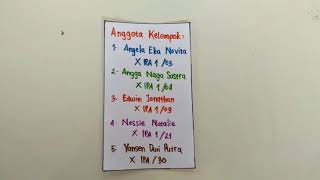 Anggota Kelompok:
1. Angela Elta Novita
X IPA 1 / 03
2. Angga Naga Sastra
X IPA 1 / 04
3. Edwin Jonathan
X IPA 1 / 09
4. Nessie Natalie
X IPA 1 / 21
5. Yansen Dwi Putra
X IPA / 30